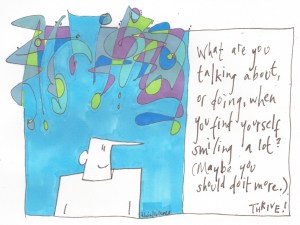 What are you
talking about,
or doing, when
you find yourself
smiling a lot?
(Maybe you
should do it more.)
THRIVE!